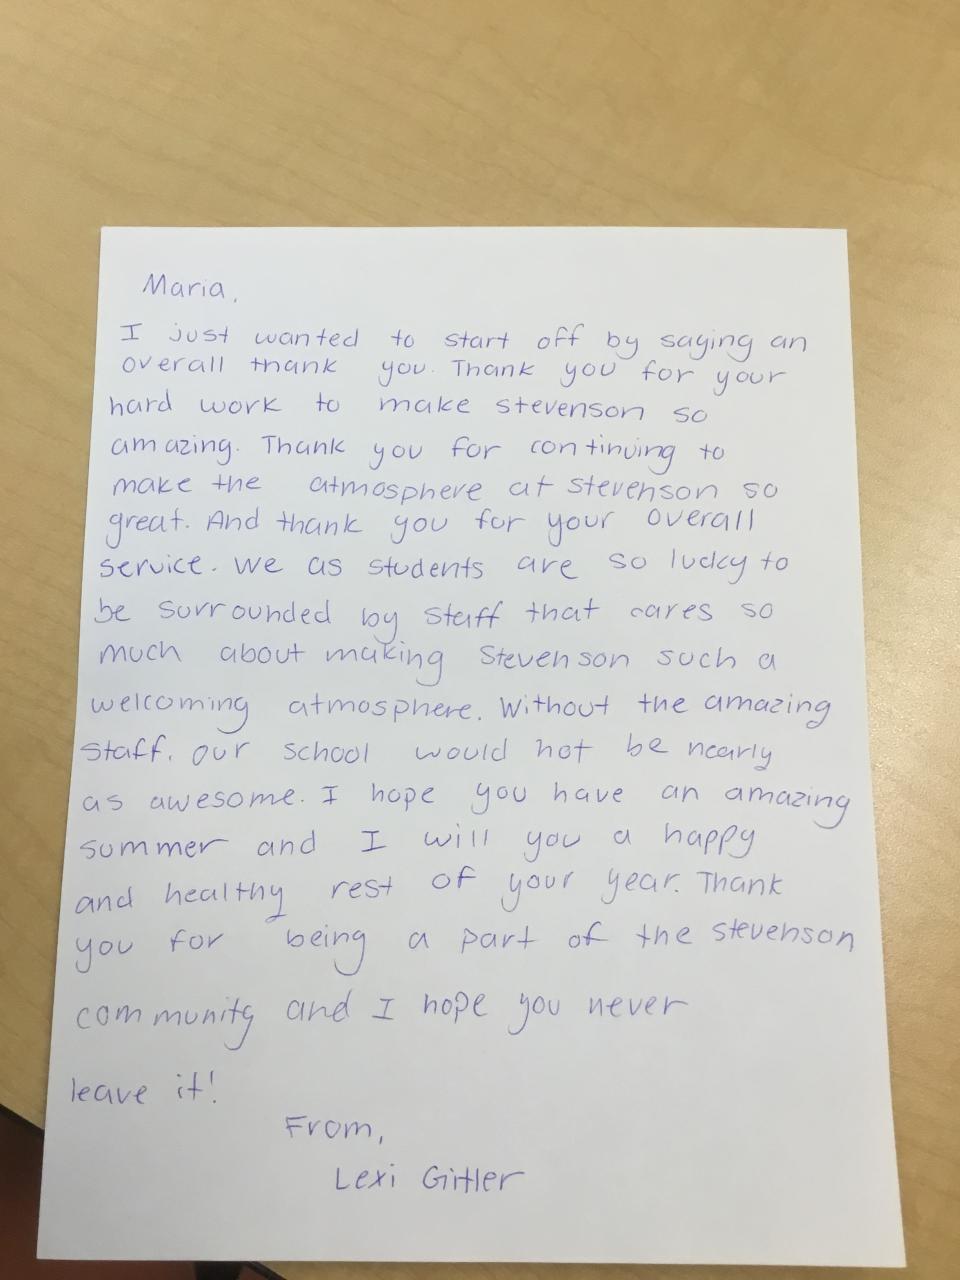 Maria,
I just wanted to start off by saying an
overall thank you. Thank you for your
hard work to make stevenson so
amazing. Thank you for continuing to
make the atmosphere at stevenson so
great. And thank you for your overall
service. We as students are so lucky to
be surrounded by staff that cares so
much about making Stevenson such a
welcoming atmosphere. Without the amazing
staff, our school would not be nearly
as awesome. I hope you have an amazing
summer and I will you a happy
and healthy rest of your year. Thank
you for being a part of the stevenson
community and I hope you never
leave it!
From,
Lexi Gitler